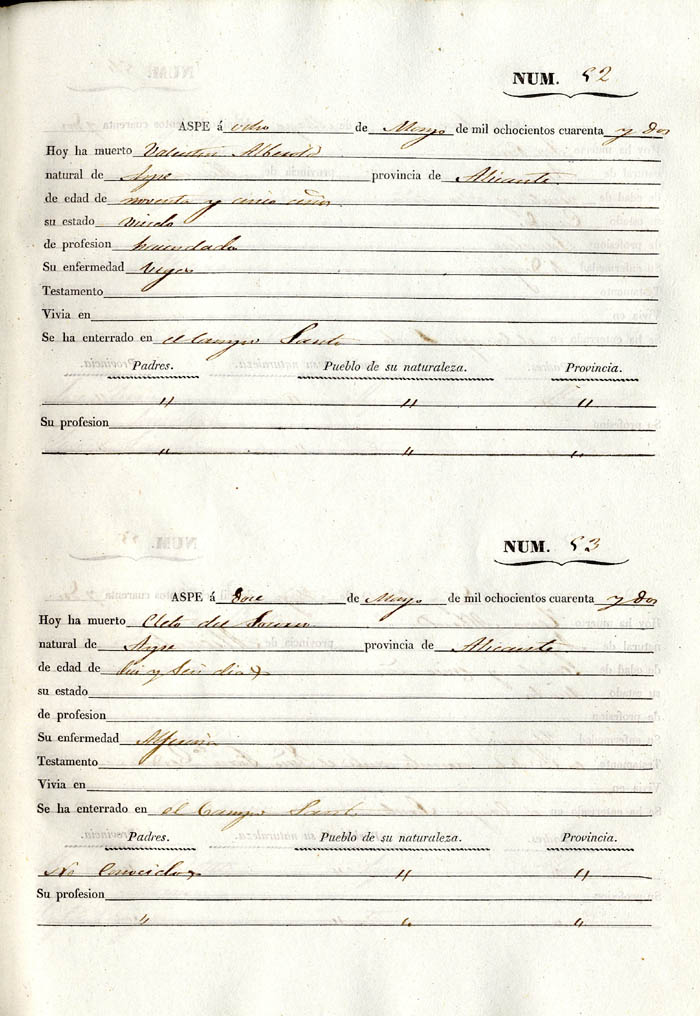 NUM. 52
ASPE á ocho de Mayo de mil ochocientos cuarenta y dos
Hoy ha muerto Valentin Alberola
natural de Aspe provincia de Alicante
de edad de noventa y cinco años
su estado viudo
de profesion hacendado
Su enfermedad vegez
Testamento
Vivia en
Se ha enterrado en el Campo Santo
Padres. Pueblo de su naturaleza. Provincia.
" " "
Su profesion
" " "
NUM. 53
ASPE á Doce de Mayo de mil ochocientos cuarenta y dos
Hoy ha muerto Cleto del
natural de Aspe provincia de Alicante
de edad de dias
su estado
de profesion
Su enfermedad Alferecia
Testamento
Vivia en
Se ha enterrado en el Campo Santo
Padres. Pueblo de su naturaleza. Provincia.
No Conocidos " "
Su profesion
" " "